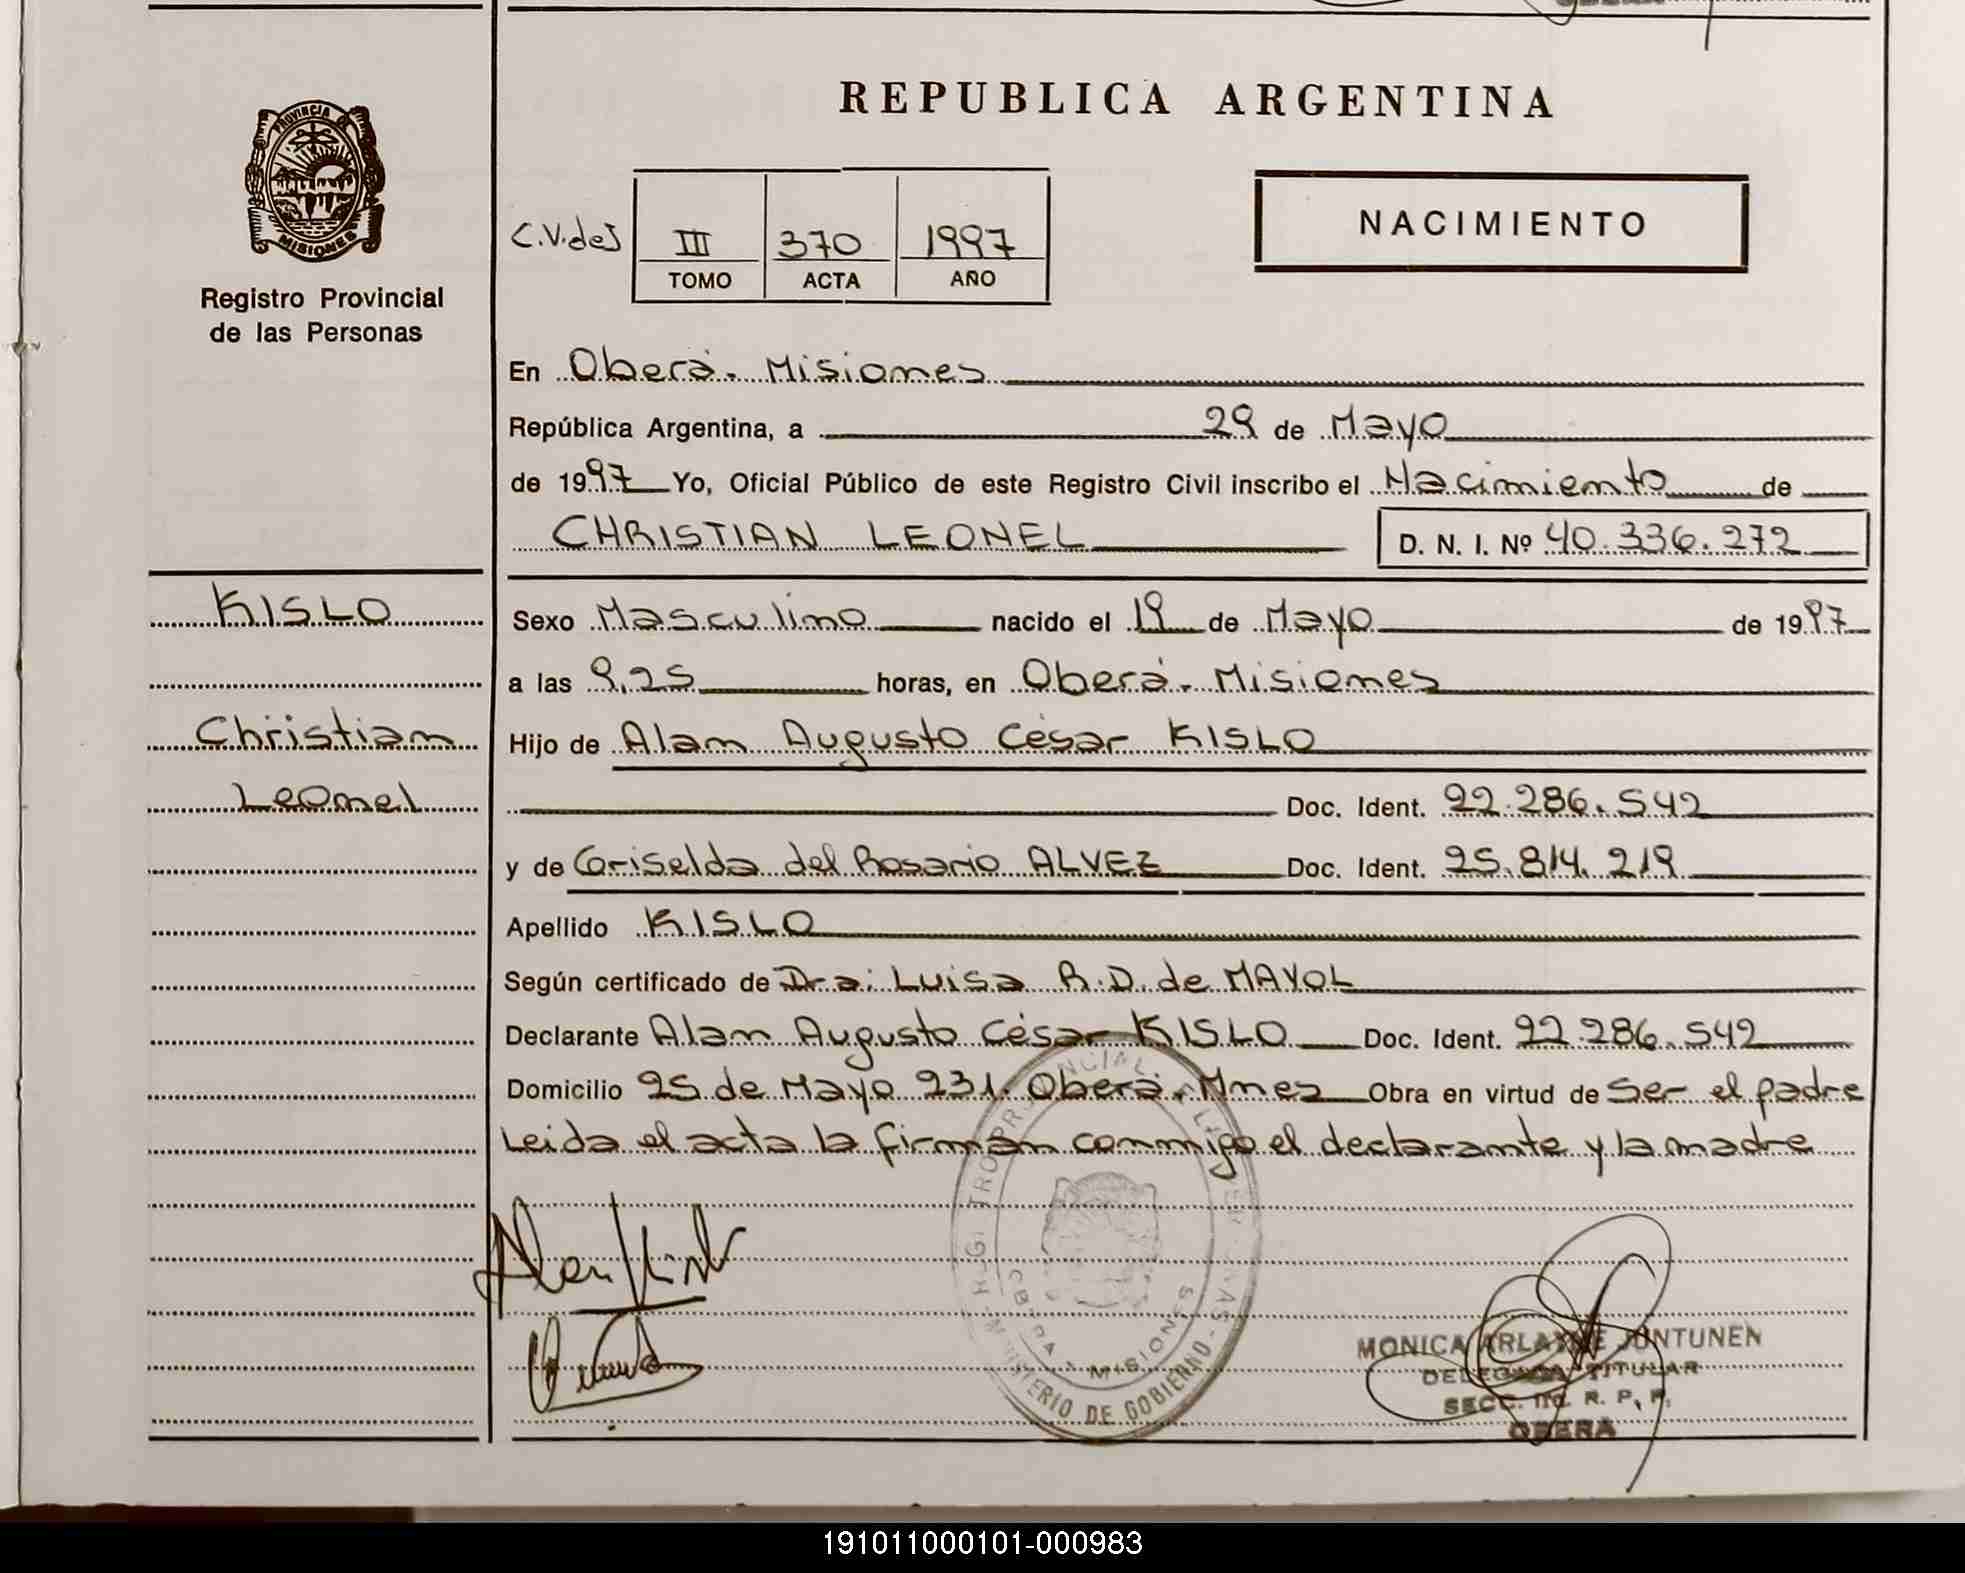 REPUBLICA ARGENTINA
PROVINCIA DE
MISIONES
Registro Provincial
de las Personas
C.V.deJ
III 370 1997
TOMO ACTA AÑO
NACIMIENTO
En Oberá. Misiones
República Argentina, a 29 de Mayo
de 1997 Yo, Oficial Público de este Registro Civil inscribo el Nacimiento de
CHRISTIAN LEONEL D. N. I. Nº 40.336.272
KISLO
Christian
Leonel
Sexo Masculino nacido el 19 de Mayo de 1997
a las 9,25 horas, en Oberá. Misiones
Hijo de Alan Augusto César KISLO
Doc. Ident. 22.286.542
y de Griselda del Rosario ALVEZ Doc. Ident. 25.814.219
Apellido KISLO
Según certificado de Dra: Luisa R.D. de MAYOL
Declarante Alan Augusto César KISLO Doc. Ident. 22.286.542
Domicilio 25 de Mayo 231. Oberá. Mnes Obra en virtud de Ser el padre
Leida el acta la firman conmigo el declarante y la madre
MINISTERIO DE GOBIERNO
MISIONES
MONICA ARLAYNE JUNTUNEN
DELEGADA TITULAR
SECC. R. P. P.
OBERA
191011000101-000983